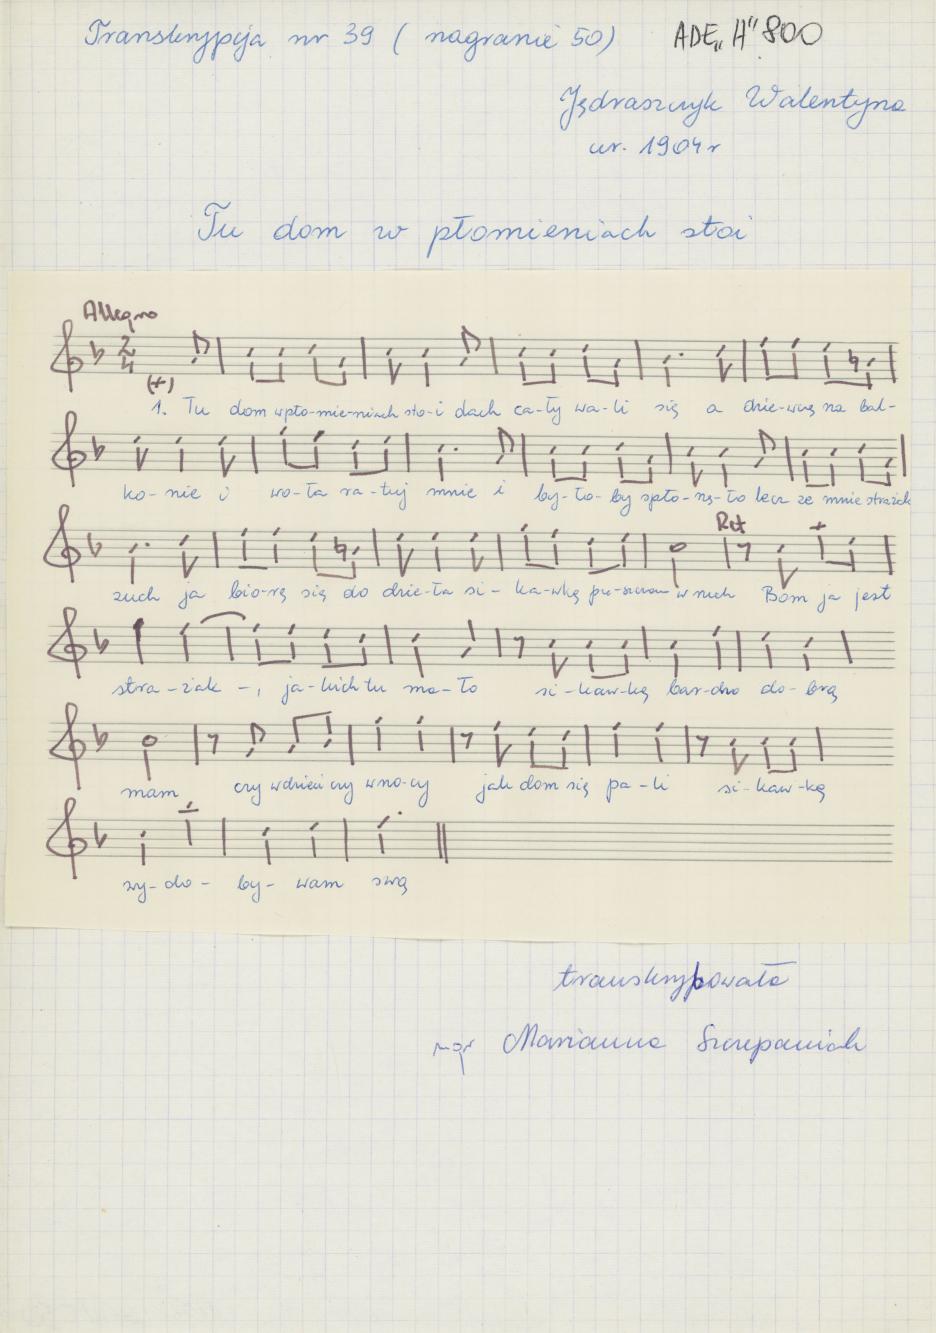 Transkrypcja nr 39 ( nagranie 50) ADE „H" 800
Jędraszczyk Walentyna
ur. 1904 r
Tu dom w płomieniach stoi
Allegro
2/4
(+)
1. Tu dom w pło-mie-niach sto-i dach ca-ły wa-li się a dziew-czę na bal-
ko-nie i wo-ła ra-tuj mnie i by-ło-by spło-nę-ło lecz ze mnie strażak
zuch ja bio-rę się do dzie-ła si-ka-wkę pu-szczam w ruch Bom ja jest
Ref
stra-żak -, ja-kich tu ma-ło si-kaw-kę bar-dzo do-brą
mam czy w dzień czy w no-cy jak dom się pa-li si-kaw-kę
wy-do-by-wam swą
transkrybowała
mgr Marianna Szczepaniak